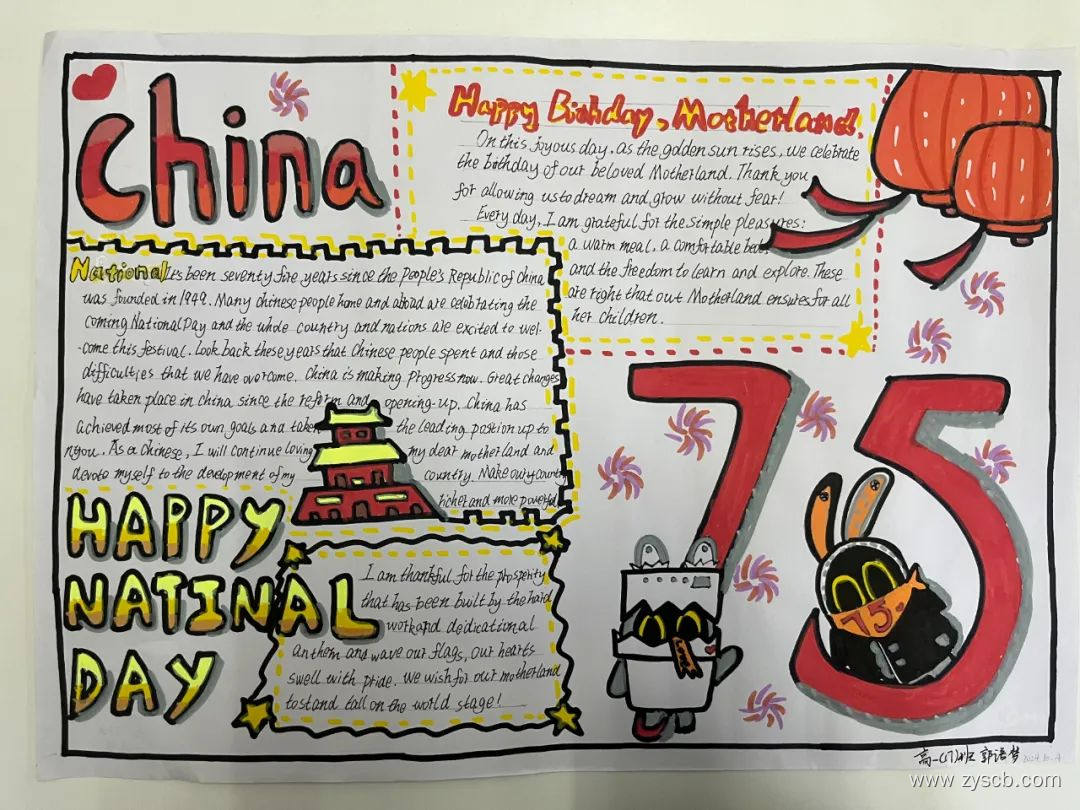 China
Happy Birhday, Motherland.
On this joyous day. as the golden sun rises, we celebrate
the birthday of our beloved Motherland. Thank you
for allowing us to dream and grow without fear!
Every day, I am grateful for the simple pleasures:
a warm meal, a comfortable bed,
and the freedom to learn and explore. These
are right that out Motherland ensures for all
her children.
National It's been seventy five years since the People's Republic of China
was founded in 1949. Many Chinese people home and abload are celebrating the
coming National Day and the whole country and nations are excited to wel-
-come this festival. Look back these years that Chinese people spent and those
difficulties that we have overcome. China is making Progress now. Great changes
have taken place in China since the reform and opening-up. China has
achieved most of its own goals and taken the leading postion up to
nyou. As a Chinese, I will continue loving my dear motherland and
devote myself to the development of my country. Make our country
richer and more powerful
HAPPY
NATINAL
DAY
I am thankful for the prosperity
that has been built by the hard
work and dedicational
anthem and wave our flags, our hearts
swell with pride. We wish for our motherland
to stand tall on the world stage!
75
75
高一(7)班 郭语梦 2024.10.4
www.zyscb.com